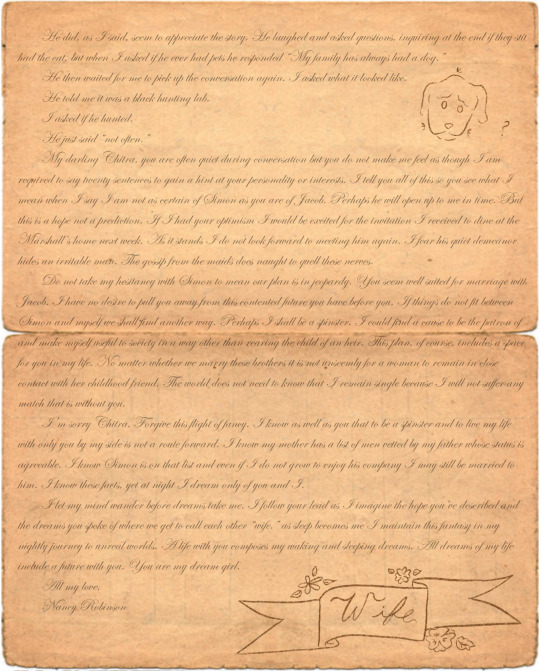 He did, as I said, seem to appreciate the story. He laughed and asked questions, inquiring at the end if they still
had the cat, but when I asked if he ever had pets he responded "My family has always had a dog."
He then waited for me to pick up the conversation again. I asked what it looked like.
He told me it was a black hunting lab.
I asked if he hunted.
He just said "not often."
?
My darling Chitra, you are often quiet during conversation but you do not make me feel as though I am
required to say twenty sentences to gain a hint at your personality or interests. I tell you all of this so you see what I
mean when I say I am not as certain of Simon as you are of Jacob. Perhaps he will open up to me in time. But
this is a hope not a prediction. If I had your optimism I would be excited for the invitation I received to dine at the
Marshall's home next week. As it stands I do not look forward to meeting him again. I fear his quiet demeanor
hides an irritable man. The gossip from the maids does naught to quell these nerves.
Do not take my hesitancy with Simon to mean our plan is in jeopardy. You seem well suited for marriage with
Jacob. I have no desire to pull you away from this contented future you have before you. If things do not fit between
Simon and myself we shall find another way. Perhaps I shall be a spinster. I could find a cause to be the patron of
and make myself useful to society in a way other than rearing the child of an heir. This plan, of course, includes a space
for you in my life. No matter whether we marry these brothers it is not unseemly for a woman to remain in close
contact with her childhood friend. The world does not need to know that I remain single because I will not suffer any
match that is without you.
I'm sorry Chitra. Forgive this flight of fancy. I know as well as you that to be a spinster and to live my life
with only you by my side is not a route forward. I know my mother has a list of men vetted by my father whose status is
agreeable. I know Simon is on that list and even if I do not grow to enjoy his company I may still be married to
him. I know these facts, yet at night I dream only of you and I.
I let my mind wander before dreams take me. I follow your lead as I imagine the hope you've described and
the dreams you spoke of where we get to call each other "wife," as sleep becomes me I maintain this fantasy in my
nightly journey to unreal worlds. A life with you composes my waking and sleeping dreams. All dreams of my life
include a future with you. You are my dream girl.
All my love,
Nancy Robinson
Wife